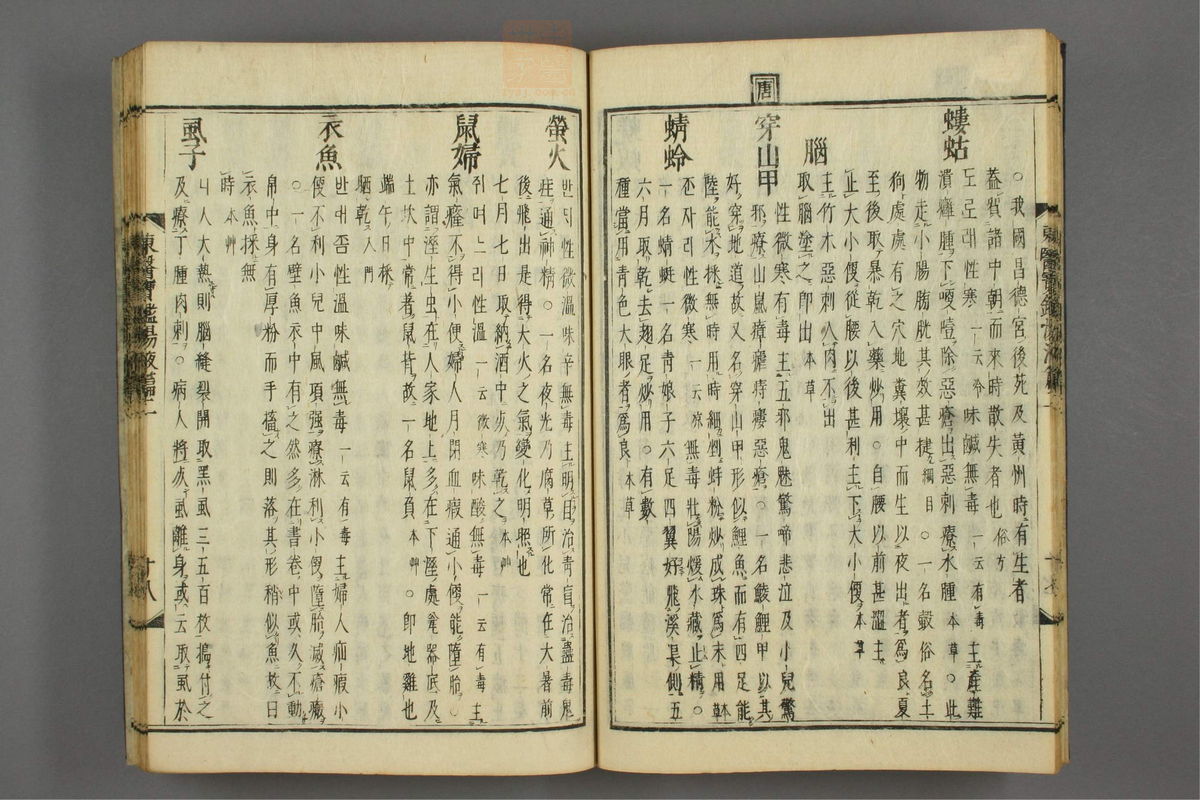 ○我國昌德宮後苑及黃州時有生者
蓋貿諸中朝而來時散失者也俗方
螻蛄
도로래性寒一云冷味鹹無毒一云有毒主産難
潰癰腫下哽噎除惡瘡出惡刺療水腫本草○此
物走小腸膀胱其效甚捷綱目○一名螜俗名土
狗處處有之穴地糞壤中而生以夜出者爲良夏
至後取暴乾入藥炒用○自腰以前甚澁主
止大小便從腰以後甚利主下大小便本草
腦
主竹木惡刺入肉不出
取腦塗之卽出本草
唐
穿山甲
性微寒有毒主五邪鬼魅驚啼悲泣及小兒驚
邪療山嵐瘴瘧痔瘻惡瘡○一名鯪鯉甲以其
好穿地道故又名穿山甲形似鯉魚而有四足能
陸能水採無時用時細剉蚌粉炒成珠爲末用本草
蜻蛉
ᄌᆞᆫ자리性微寒一云凉無毒壯陽煖水藏止精○
一名蜻蜓一名靑娘子六足四翼好飛溪渠側五
六月取乾去翅足炒用○有數
種當用靑色大眼者爲良本草
螢火
반되性微溫味辛無毒主明目治靑盲治蠱毒鬼
疰通神精○一名夜光乃腐草所化常在大暑前
後飛出是得大火之氣變化明照也
七月七日取納酒中死乃乾之本草
鼠婦
쥐며느리性溫一云微寒味酸無毒一云有毒主
氣癃不得小便婦人月閉血瘕通小便能墮胎○
亦謂濕生虫在人家地上多在下濕處瓮器底及
土坎中常着鼠背故一名鼠負本草○卽地雞也
端午日採
晒乾入門
衣魚
반대좀性溫味鹹無毒一云有毒主婦人疝瘕小
便不利小兒中風項强療淋利小便墮胎滅瘡瘢
○一名壁魚衣中有之然多在書卷中或久不動
帛中身有厚粉而手搐之則落其形稍似魚故曰
衣魚採無
時本草
虱子
니人大熱則腦縫裂開取黑虱三五百枚擣付之
及療丁腫肉刺○病人將死虱離身或云取虱於
東醫寶鑑湯液篇二
十八